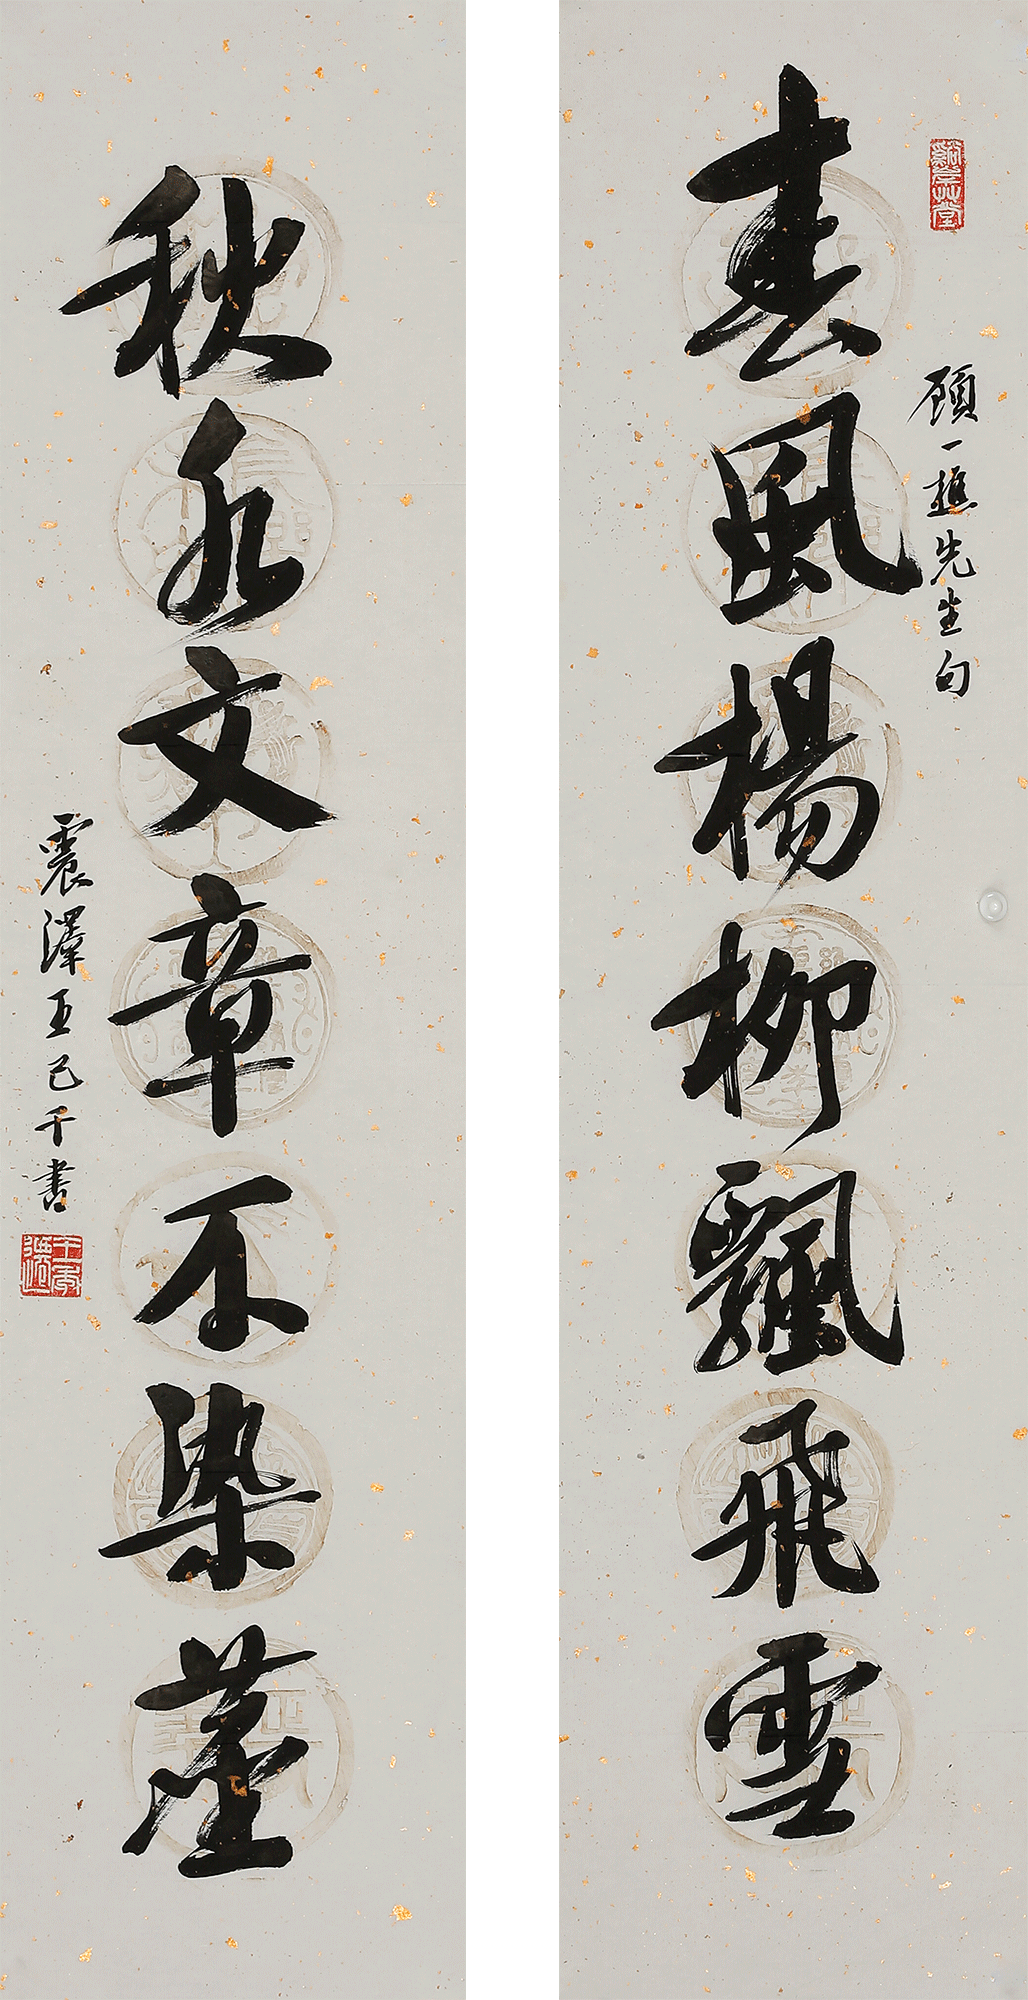 顧一樵先生句
春風楊柳飄飛雪
秋水文章不染塵
震澤王己千書